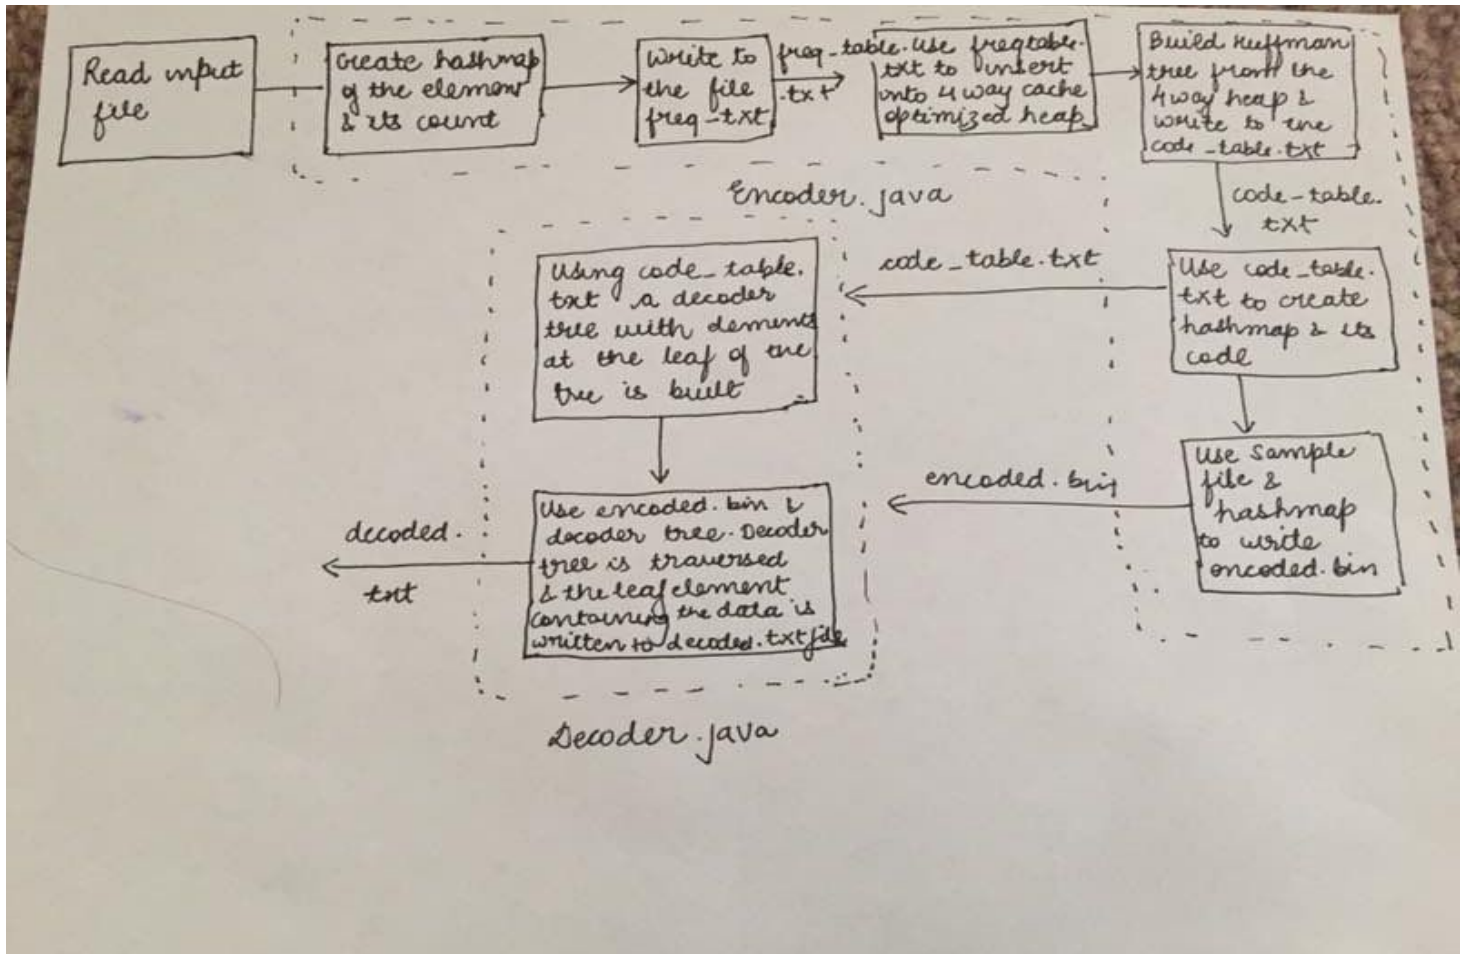 Read input
file
Create hashmap
of the element
& its count
Write to
the file
freq-txt
freq-table.
.txt
Use freqtable.
txt to insert
onto 4 way cache
optimized heap
Build Huffman
tree from the
4 way heap &
write to the
code_table.txt
code-table.
txt
Encoder.java
Use code_table.
txt to create
hashmap & its
code
code_table.txt
Using code_table.
txt a decoder
tree with elements
at the leaf of the
tree is built
Use Sample
file &
hashmap
to write
encoded.bin
encoded.bin
Use encoded.bin &
decoder tree. Decoder
tree is traversed
& the leaf element
containing the data is
written to decoded.txt file
decoded.
txt
Decoder.java